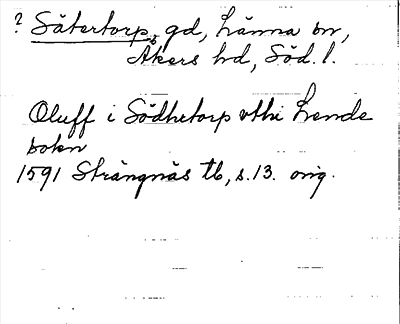 ? Sätertorp, gd, Länna sn,
Åkers hd, Söd. l.
Oluff i Södhetorp vthi Lende
sokn
1591 Strängnäs tb, s. 13. orig.